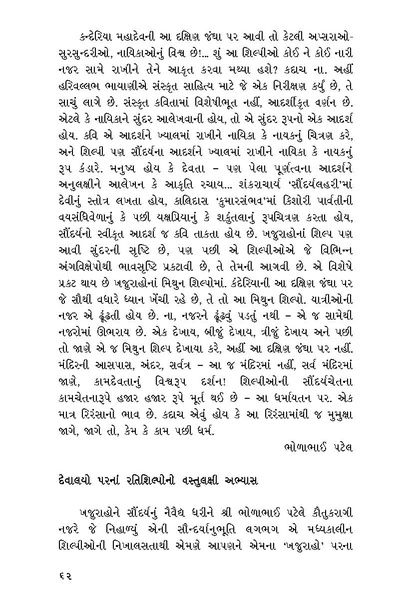 કન્દેરિયા મહાદેવની આ દક્ષિણ જંઘા પર આવી તો કેટલી અપ્સરાઓ-
સુરસુન્દરીઓ, નાયિકાઓનું વિશ્વ છે!... શું આ શિલ્પીઓ કોઈ ને કોઈ નારી
નજર સામે રાખીને તેને આકૃત કરવા મથ્યા હશે? કદાચ ના. અહીં
હરિવલ્લભ ભાયાણીએ સંસ્કૃત સાહિત્ય માટે જે એક નિરીક્ષણ કર્યું છે, તે
સાચું લાગે છે. સંસ્કૃત કવિતામાં વિશેષીભૂત નહીં, આદર્શીકૃત વર્ણન છે.
એટલે કે નાયિકાને સુંદર આલેખવાની હોય, તો એ સુંદર રૂપનો એક આદર્શ
હોય. કવિ એ આદર્શને ખ્યાલમાં રાખીને નાયિકા કે નાયકનું ચિત્રણ કરે,
અને શિલ્પી પણ સૌંદર્યના આદર્શને ખ્યાલમાં રાખીને નાયિકા કે નાયકનું
રૂપ કંડારે. મનુષ્ય હોય કે દેવતા – પણ પેલા પૂર્ણત્વના આદર્શને
અનુલક્ષીને આલેખન કે આકૃતિ રચાય... શંકરાચાર્ય ‘સૌંદર્યલહરી’માં
દેવીનું સ્તોત્ર લખતા હોય, કાલિદાસ ‘કુમારસંભવ’માં કિશોરી પાર્વતીની
વયસંધિવેળાનું કે પછી યક્ષપ્રિયાનું કે શકુંતલાનું રૂપચિત્રણ કરતા હોય,
સૌંદર્યનો સ્વીકૃત આદર્શ જ કવિ તાકતા હોય છે. ખજુરાહોનાં શિલ્પ પણ
આવી સુંદરની સૃષ્ટિ છે, પણ પછી એ શિલ્પીઓએ જે વિભિન્ન
અંગવિક્ષેપોથી ભાવસૃષ્ટિ પ્રકટાવી છે, તે તેમની આગવી છે. એ વિશેષે
પ્રકટ થાય છે ખજુરાહોનાં મિથુન શિલ્પોમાં. કંદેરિયાની આ દક્ષિણ જંઘા પર
જે સૌથી વધારે ધ્યાન ખેંચી રહે છે, તે તો આ મિથુન શિલ્પો. યાત્રીઓની
નજર એ ઢૂંઢતી હોય છે. ના, નજરને ઢૂંઢવું પડતું નથી – એ જ સામેથી
નજરોમાં ઊભરાય છે. એક દેખાય, બીજું દેખાય, ત્રીજું દેખાય અને પછી
તો જાણે એ જ મિથુન શિલ્પ દેખાયા કરે, અહીં આ દક્ષિણ જંઘા પર નહીં.
મંદિરની આસપાસ, અંદર, સર્વત્ર – આ જ મંદિરમાં નહીં, સર્વ મંદિરમાં
જાણે, કામદેવતાનું વિશ્વરૂપ દર્શન! શિલ્પીઓની સૌંદર્યચેતના
કામચેતનારૂપે હજાર હજાર રૂપે મૂર્ત થઈ છે – આ ધર્માયતન પર. એક
માત્ર રિરંસાનો ભાવ છે. કદાચ એવું હોય કે આ રિરંસામાંથી જ મુમુક્ષા
જાગે, જાગે તો, કેમ કે કામ પછી ધર્મ.
ભોળાભાઈ પટેલ
દેવાલયો પરનાં રતિશિલ્પોનો વસ્તુલક્ષી અભ્યાસ
ખજુરાહોને સૌંદર્યનું નૈવૈદ્ય ધરીને શ્રી ભોળાભાઈ પટેલે કૌતુકરાગી
નજરે જે નિહાળ્યું એની સૌન્દર્યાનુભૂતિ લગભગ એ મધ્યકાલીન
શિલ્પીઓની નિખાલસતાથી એમણે આપણને એમના ‘ખજુરાહો’ પરના
૬૨